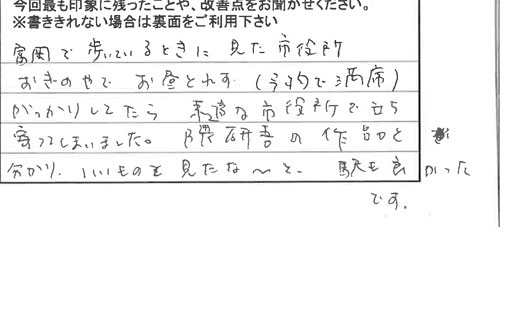 今回最も印象に残ったことや、改善点をお聞かせください。
※書ききれない場合は裏面をご利用下さい
富岡で歩いているときに見た市役所
おきのやで お昼とれず(予約で満席)
がっかりしてたら 素適な市役所で立ち
寄ってしまいました。隈研吾の作品と
分かり、いいものを見たな〜と。駅も良かった
です。